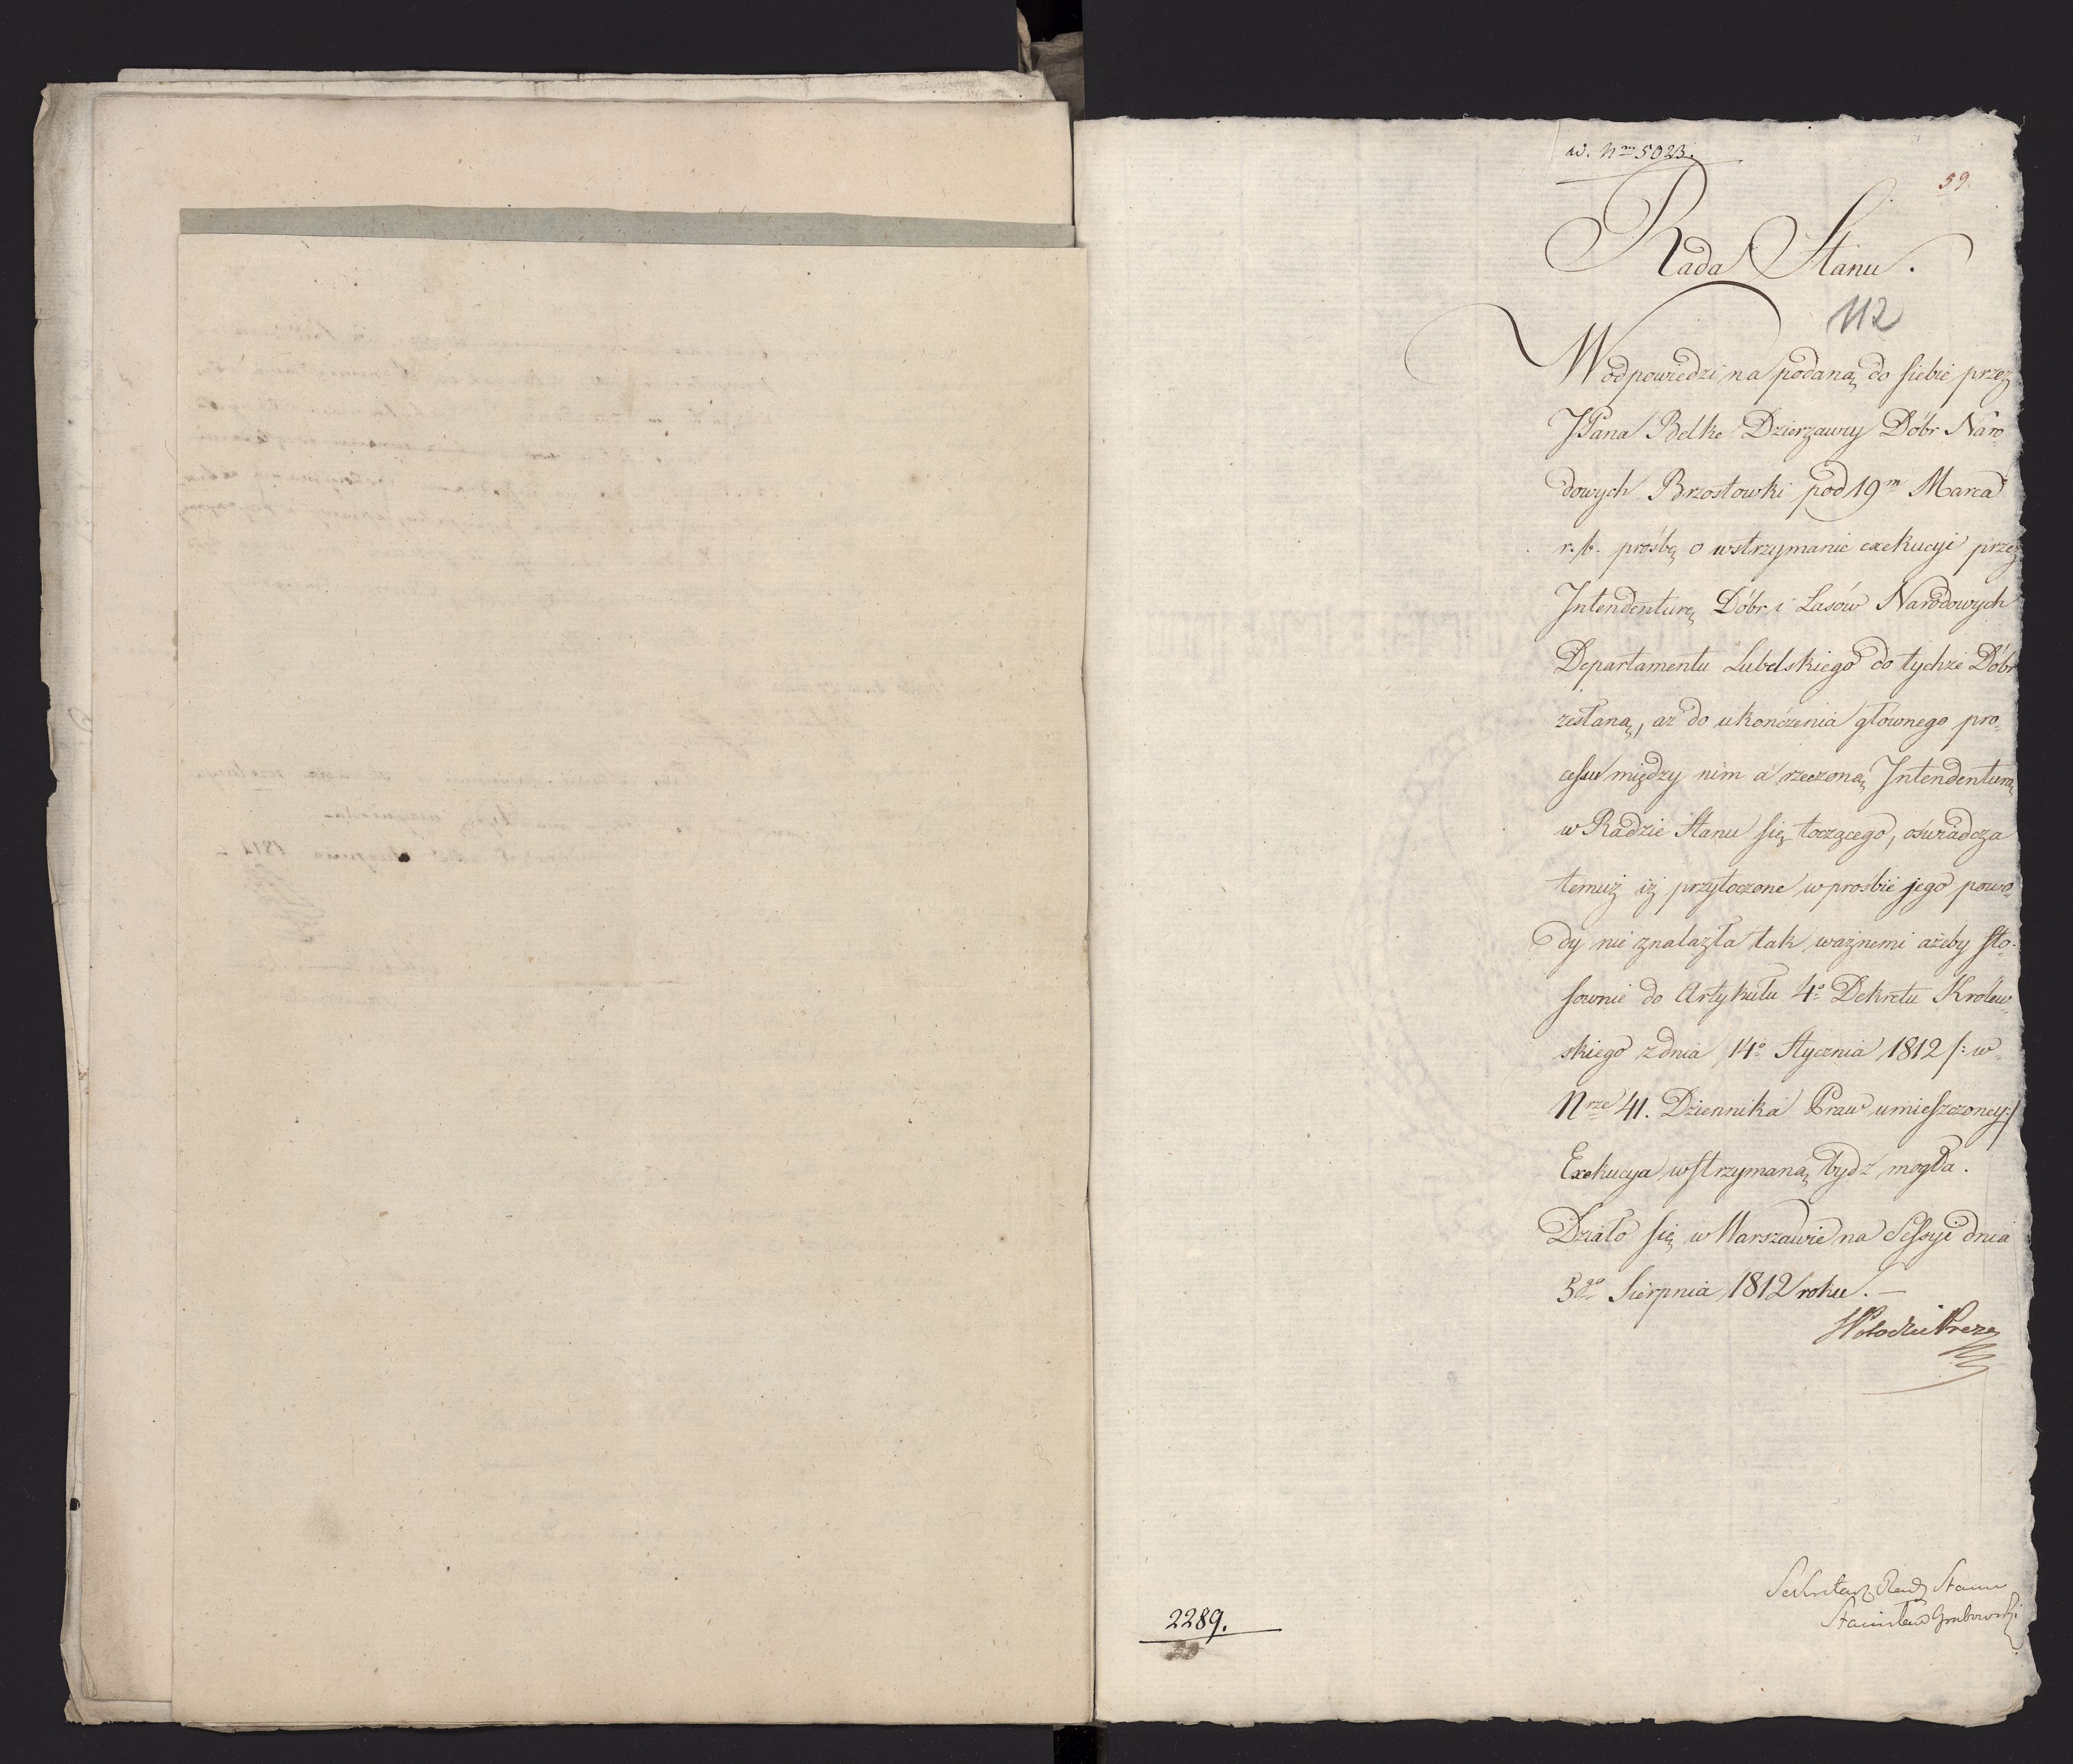 ad. Nm 5023.
59.
Rada Stanu.
112
W odpowiedzi na podaną do siebie przez
JPana Belke Dzierzawcy Dóbr Naro-
dowych Brzostowki pod 19m Marca
r. b. prośbę o wstrzymanie exekucyi przez
Intendenturę Dóbr i Lasów Narodowych
Departamentu Lubelskiego do tychże Dóbr
zesłaną, az do ukończenia głównego pro-
cessu między nim a rzeczoną Intendenturą
w Radzie Stanu się toczącego, oświadcza
temuż iż przytoczone w prośbie jego powo-
dy nie znalazła tak ważnemi ażeby sto-
sownie do Artykułu 4o Dekretu Królew-
skiego z dnia 14o Stycznia 1812 /: w
Nrze 41. Dziennika Praw umieszczoney :/
Exekucya wstrzymaną bydź mogła.
Działo się w Warszawie na Sessyi dnia
5go Sierpnia 1812 roku. —
Sekretarz Rady Stanu
Stanisław Grabowski
2289.